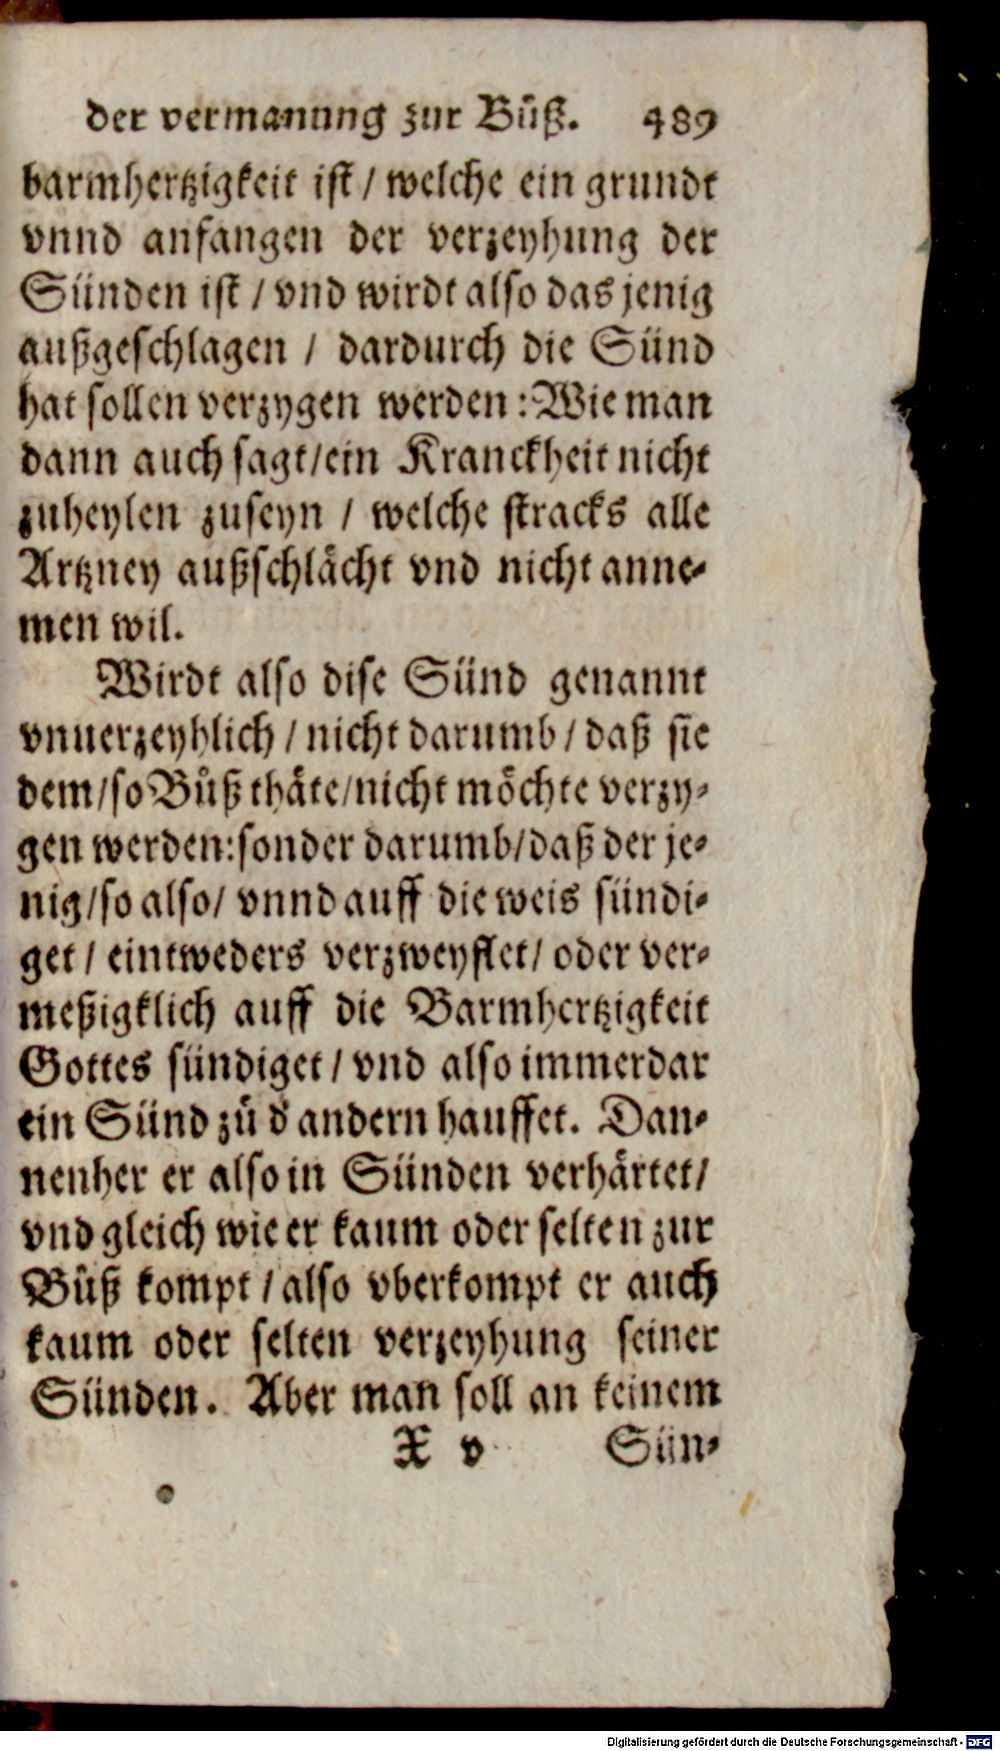 der vermanung zur Bůß. 489
barmhertzigkeit ist / welche ein grundt
vnnd anfangen der verzeyhung der
Sünden ist / vnd wirdt also das jenig
außgeschlagen / dardurch die Sünd
hat sollen verzygen werden: Wie man
dann auch sagt / ein Kranckheit nicht
zuheylen zuseyn / welche stracks alle
Artzney außschlächt vnd nicht anne-
men wil.
Wirdt also dise Sünd genannt
vnuerzeyhlich / nicht darumb / daß sie
dem / so Bůß thäte / nicht möchte verzy-
gen werden: sonder darumb / daß der je-
nig / so also / vnnd auff die weis sündi-
get / eintweders verzweyflet / oder ver-
meßigklich auff die Barmhertzigkeit
Gottes sündiget / vnd also immerdar
ein Sünd zů d' andern hauffet. Dan-
nenher er also in Sünden verhärtet /
vnd gleich wie er kaum oder selten zur
Bůß kompt / also vberkompt er auch
kaum oder selten verzeyhung seiner
Sünden. Aber man soll an keinem
X v Sün-
Digitalisierung gefördert durch die Deutsche Forschungsgemeinschaft - DFG